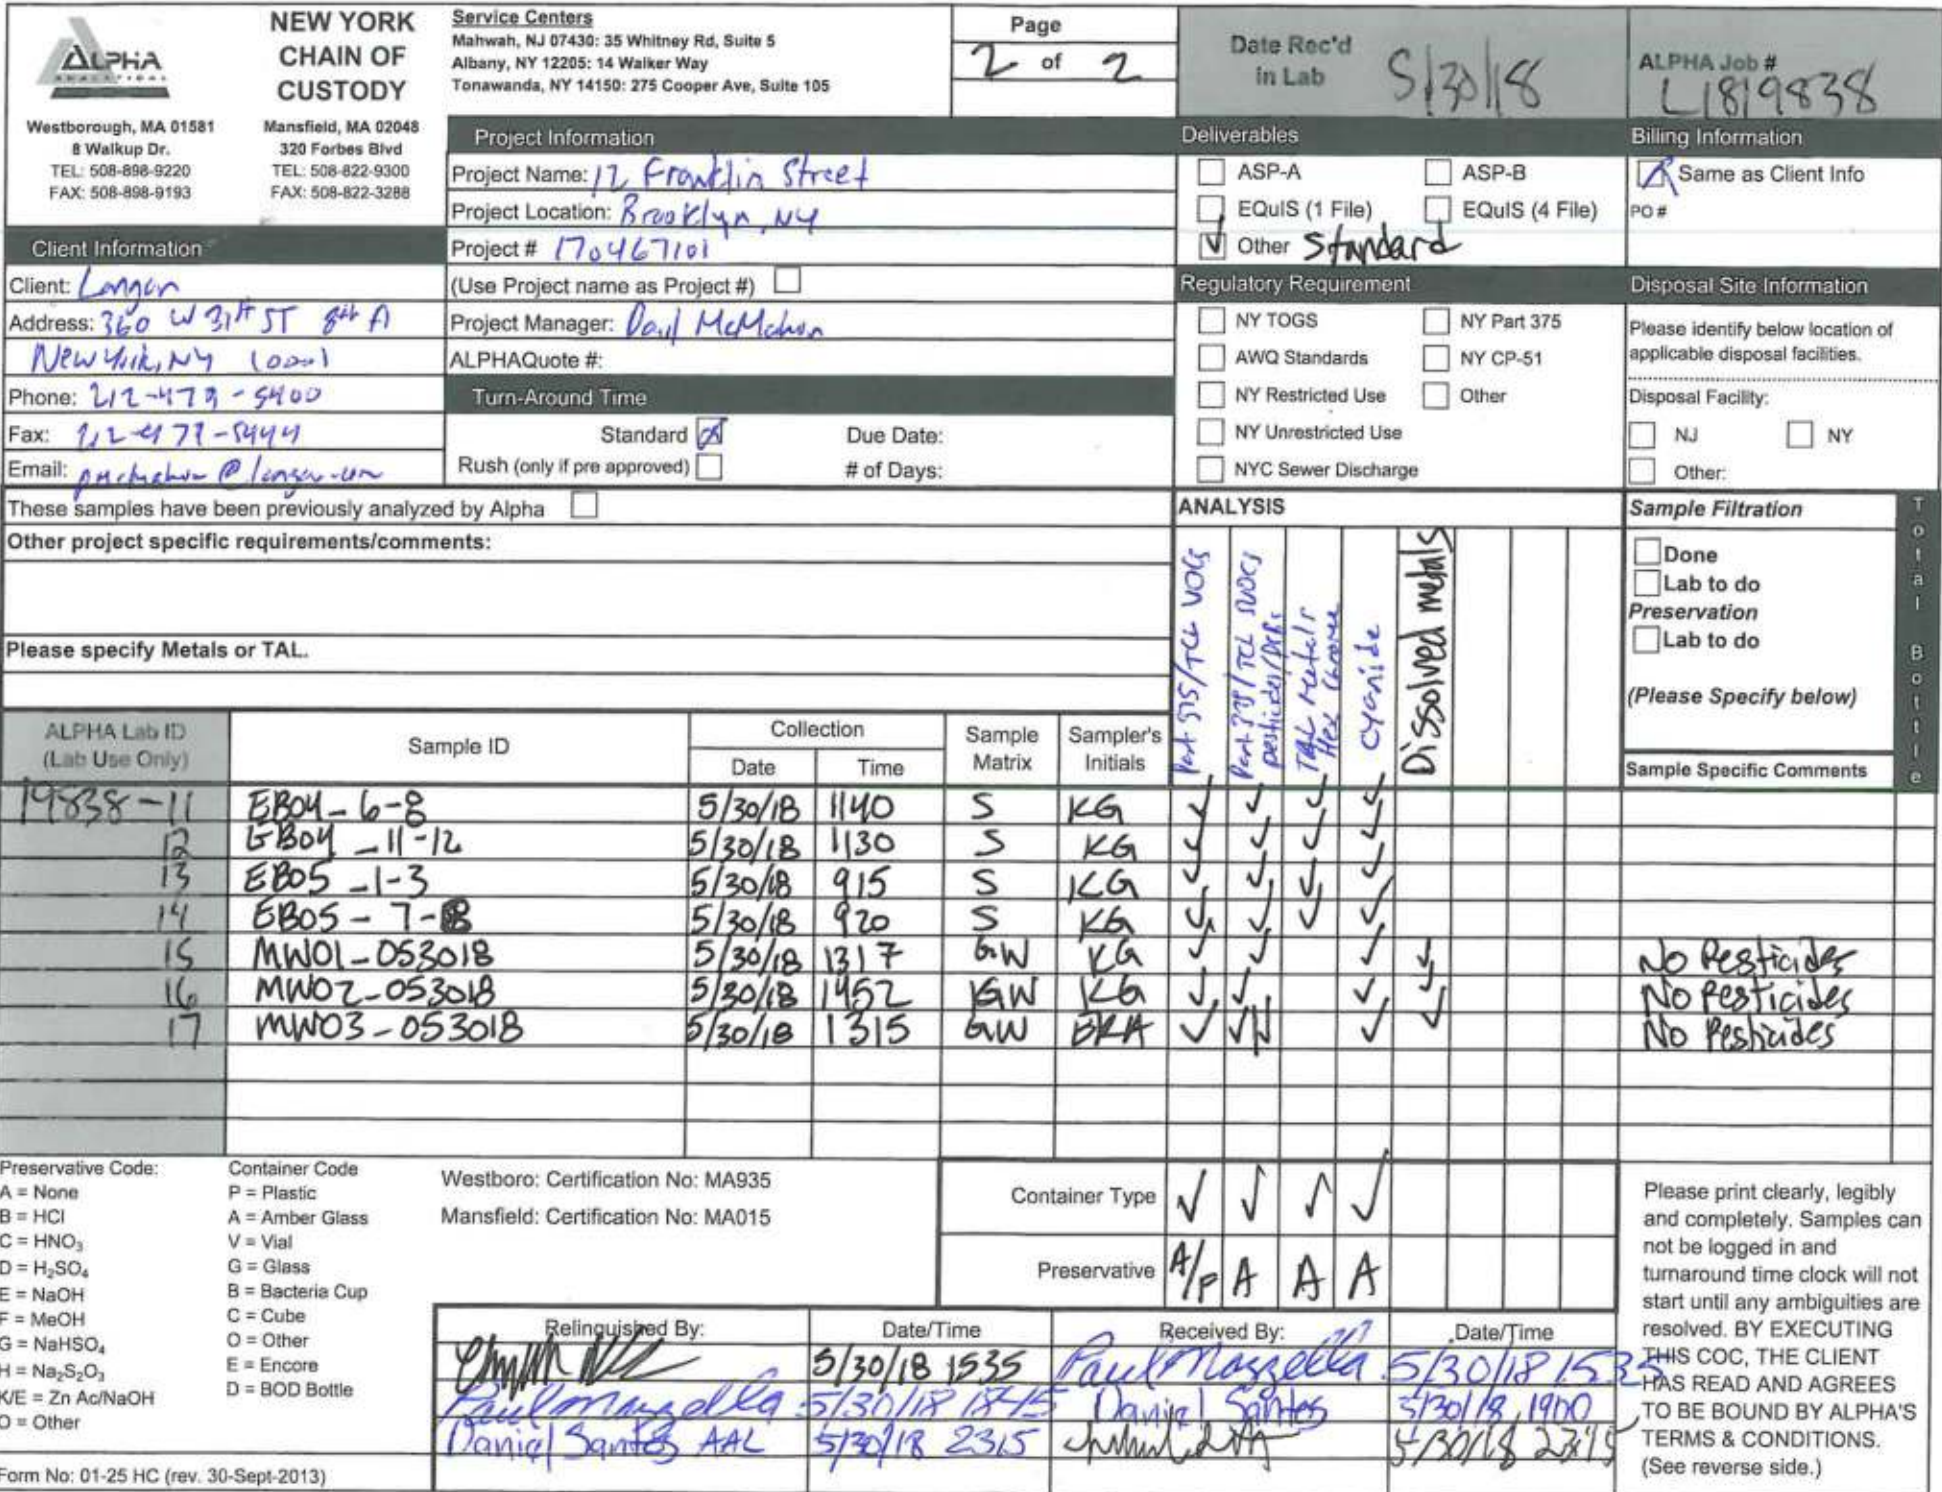 ALPHA
ANALYTICAL
NEW YORK
CHAIN OF
CUSTODY
Westborough, MA 01581
8 Walkup Dr.
TEL: 508-898-9220
FAX: 508-898-9193
Mansfield, MA 02048
320 Forbes Blvd
TEL: 508-822-9300
FAX: 508-822-3288
Service Centers
Mahwah, NJ 07430: 35 Whitney Rd, Suite 5
Albany, NY 12205: 14 Walker Way
Tonawanda, NY 14150: 275 Cooper Ave, Suite 105
Page
2 of 2
Date Rec'd
in Lab
5/30/18
ALPHA Job #
L1819838
Client Information
Client: Langan
Address: 360 W 31st ST 8th
New York, NY 10001
Phone: 212-479-5400
Fax: 212-479-5444
Email: pmcmahon@langan.com
Project Information
Project Name: 12 Franklin Street
Project Location: Brooklyn, NY
Project # 170467101
(Use Project name as Project #)
Project Manager: Paul McMahon
ALPHAQuote #:
Turn-Around Time
Standard
Due Date:
Rush (only if pre approved)
# of Days:
Deliverables
ASP-A
ASP-B
EQuIS (1 File)
EQuIS (4 File)
Other Standard
Regulatory Requirement
NY TOGS
NY Part 375
AWQ Standards
NY CP-51
NY Restricted Use
Other
NY Unrestricted Use
NYC Sewer Discharge
Billing Information
Same as Client Info
PO #
Disposal Site Information
Please identify below location of
applicable disposal facilities.
Disposal Facility:
NJ
NY
Other:
These samples have been previously analyzed by Alpha
Other project specific requirements/comments:
Please specify Metals or TAL.
ANALYSIS
Part 375/TCL VOCs
Part 375/TCL SVOCs
pesticides/PCBs
TAL Metals
Hex Chrome
Cyanide
Dissolved metals
Sample Filtration
Done
Lab to do
Preservation
Lab to do
(Please Specify below)
Total Bottle
ALPHA Lab ID
(Lab Use Only)
Sample ID
Collection
Date
Time
Sample
Matrix
Sampler's
Initials
Sample Specific Comments
19838-11 EB04_6-8 5/30/18 1140 S KG
12 EB04_11-12 5/30/18 1130 S KG
13 EB05_1-3 5/30/18 915 S KG
14 EB05-7-8 5/30/18 920 S KG
15 MW01-053018 5/30/18 1317 GW KG No Pesticides
16 MW02-053018 5/30/18 1452 GW KG No Pesticides
17 MW03-053018 5/30/18 1315 GW No Pesticides
Preservative Code:
A = None
B = HCl
C = HNO₃
D = H₂SO₄
E = NaOH
F = MeOH
G = NaHSO₄
H = Na₂S₂O₃
K/E = Zn Ac/NaOH
O = Other
Container Code
P = Plastic
A = Amber Glass
V = Vial
G = Glass
B = Bacteria Cup
C = Cube
O = Other
E = Encore
D = BOD Bottle
Westboro: Certification No: MA935
Mansfield: Certification No: MA015
Container Type
Preservative A/F A A A
Relinquished By:
Date/Time
Received By:
Date/Time
5/30/18 1535 Paul Mazzella 5/30/18 1535
Paul Mazzella 5/30/18 1845 Daniel Santos 5/30/18 1900
Daniel Santos AAL 5/30/18 2315 5/30/18 23:15
Please print clearly, legibly
and completely. Samples can
not be logged in and
turnaround time clock will not
start until any ambiguities are
resolved. BY EXECUTING
THIS COC, THE CLIENT
HAS READ AND AGREES
TO BE BOUND BY ALPHA'S
TERMS & CONDITIONS.
(See reverse side.)
Form No: 01-25 HC (rev. 30-Sept-2013)